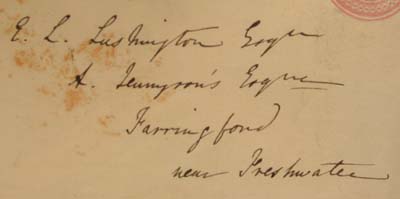 E. L. Lushington Esqre
A. Tennyson's Esqre
Farringford
near Freshwater